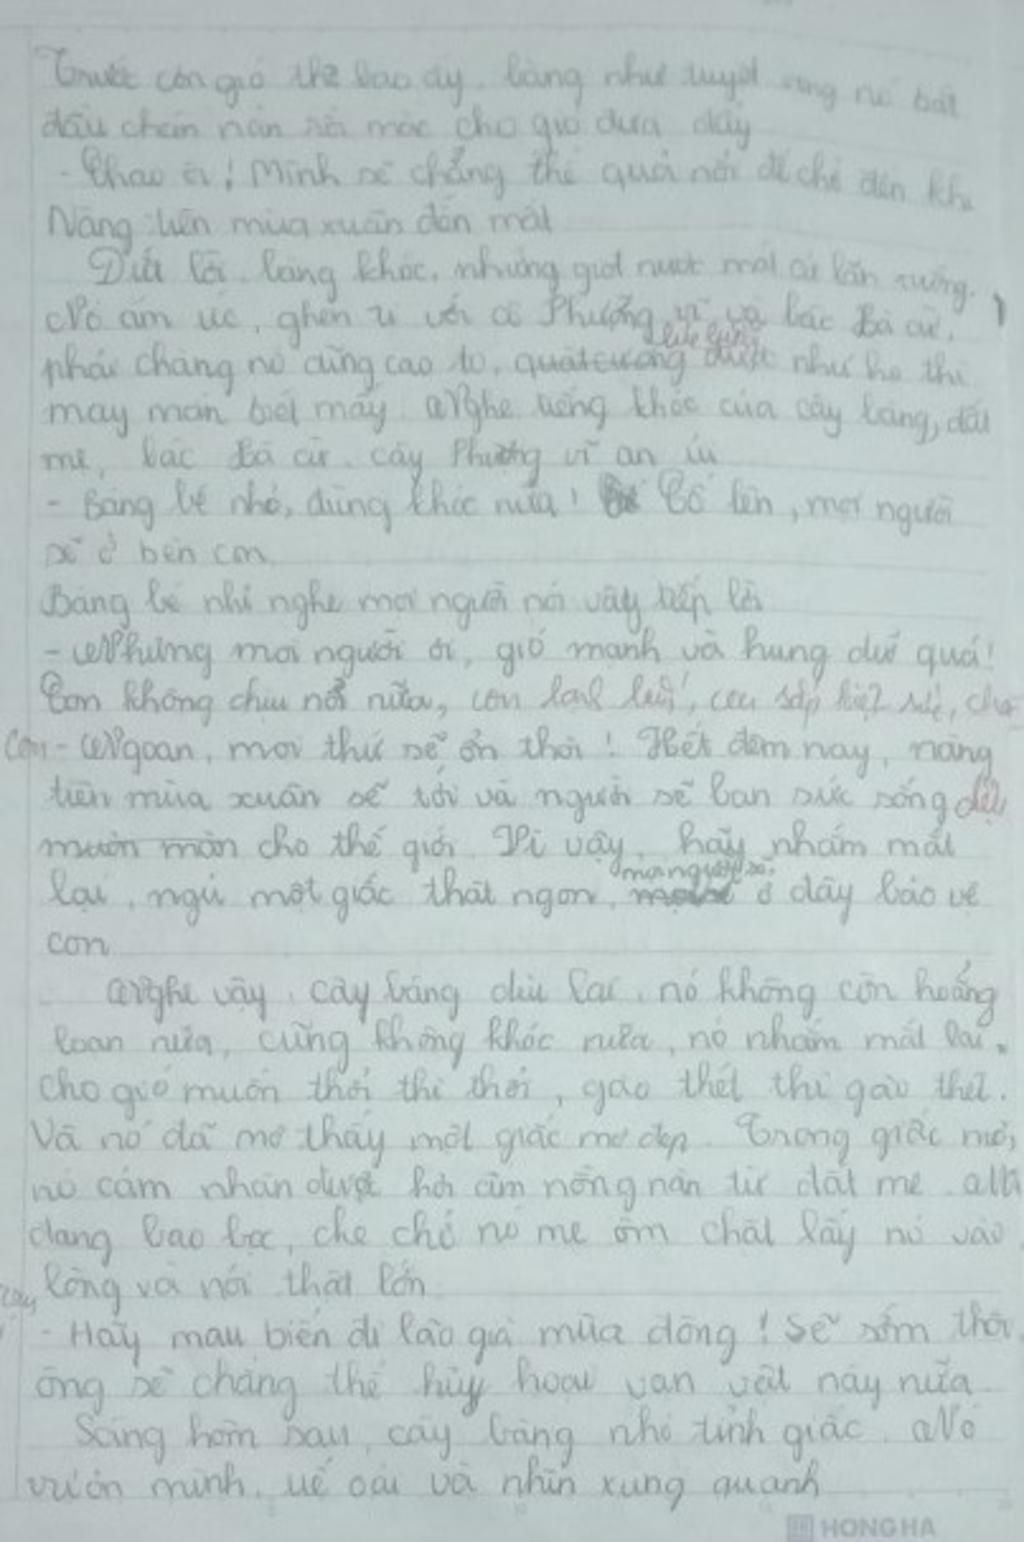 Trước cơn gió thô bao ấy, bàng như tuyệt vọng nó bắt
đầu chán nản rồi mặc cho gió đưa đẩy
- Chao ôi! Mình sẽ chẳng thể quá nổi để chờ đến khi
Nàng tiên mùa xuân đến mất
Dứt lời, bàng khóc, những giọt nước mắt cứ lăn xuống.
Nó ấm ức, ghen tị với cô Phượng vĩ và bác Đa cừ,
phải chăng nó cũng cao to, được như họ thì
may mắn biết mấy. Nghe tiếng khóc của cây bàng, đất
mẹ, bác Đa cừ, cây Phượng vĩ an ủi
- Bàng bé nhỏ, đừng khóc nữa! Cố lên, mọi người
sẽ ở bên con
Bàng bé nhỏ nghe mọi người nói vậy tiếp lời
- Nhưng mọi người ơi, gió mạnh và hung dữ quá!
Con không chịu nổi nữa, con lạnh lắm, con sắp kiệt sức,
Con - Ngoan, mọi thứ sẽ ổn thôi! Hết đêm nay, nàng
tiên mùa xuân sẽ tới và người sẽ ban sức sống
muôn màn cho thế giới. Vì vậy, hãy nhắm mắt
mọi người sẽ
lại, ngủ một giấc thật ngon, ở đây bảo vệ
con
Nghe vậy, cây bàng dịu lại, nó không còn hoảng
loạn nữa, cũng không khóc nữa, nó nhắm mắt lại,
cho gió muốn thổi thì thổi, gào thét thì gào thét.
Và nó đã mơ thấy một giấc mơ đẹp. Trong giấc mơ,
nó cảm nhận được hơi ấm nồng nàn từ đất mẹ. Mẹ
đang bao bọc, che chở nó mẹ ôm chặt lấy nó vào
lòng và nói thật lớn
- Hãy mau biến đi lão già mùa đông! Sẽ sớm thôi,
ông sẽ chẳng thể hủy hoại vạn vật này nữa
Sáng hôm sau, cây bàng nhỏ tỉnh giấc. Nó
vươn mình, uể oải và nhìn xung quanh
HONG HA